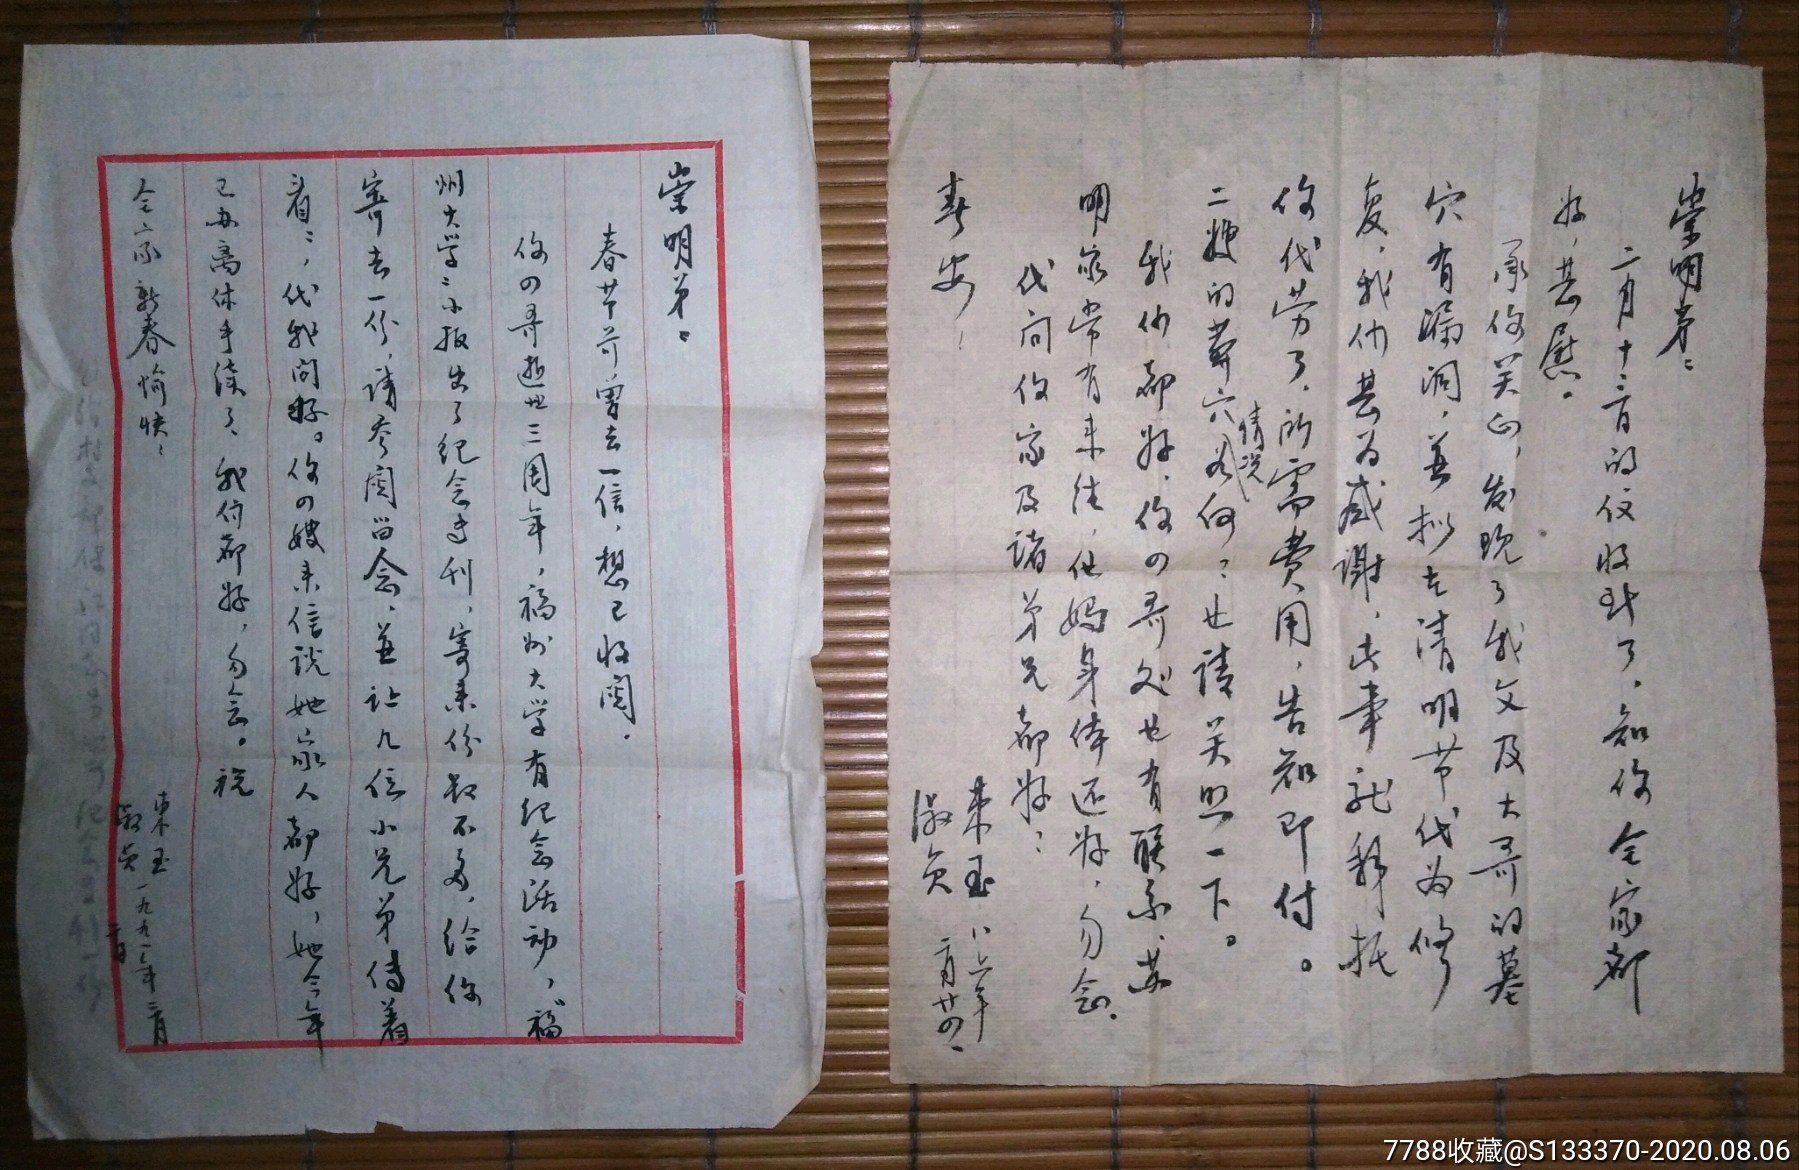 崇明弟：
二月十二日的信收到了，知你全家都
好，甚慰。
承你关心，发现了我父及大哥的墓
穴有漏洞，并拟在清明节代为修
复，我们甚为感谢，此事就拜托
你代劳了，所需费用，告知即付。
二嫂的葬穴情况如何？也请关照一下。
我们都好，你四哥处也有联系，苏
明家常有来往，他妈身体还好，勿念。
代问你家及诸弟兄都好！
春安！
东玉
淑贞
八六年
二月廿四
崇明弟：
春节前曾去一信，想已收阅。
你四哥逝世三周年，福州大学有纪念活动，福
州大学》小报出了纪念专刊，寄来份数不多，给你
寄去一份，请参阅留念，并让几位小兄弟传着
看看，代我问好。你四嫂来信说她家人都好，她今年
已办离休手续了，我们都好，勿念。祝
全家新春愉快！
东玉
淑贞
一九九一年二月
7788收藏@S133370-2020.08.06